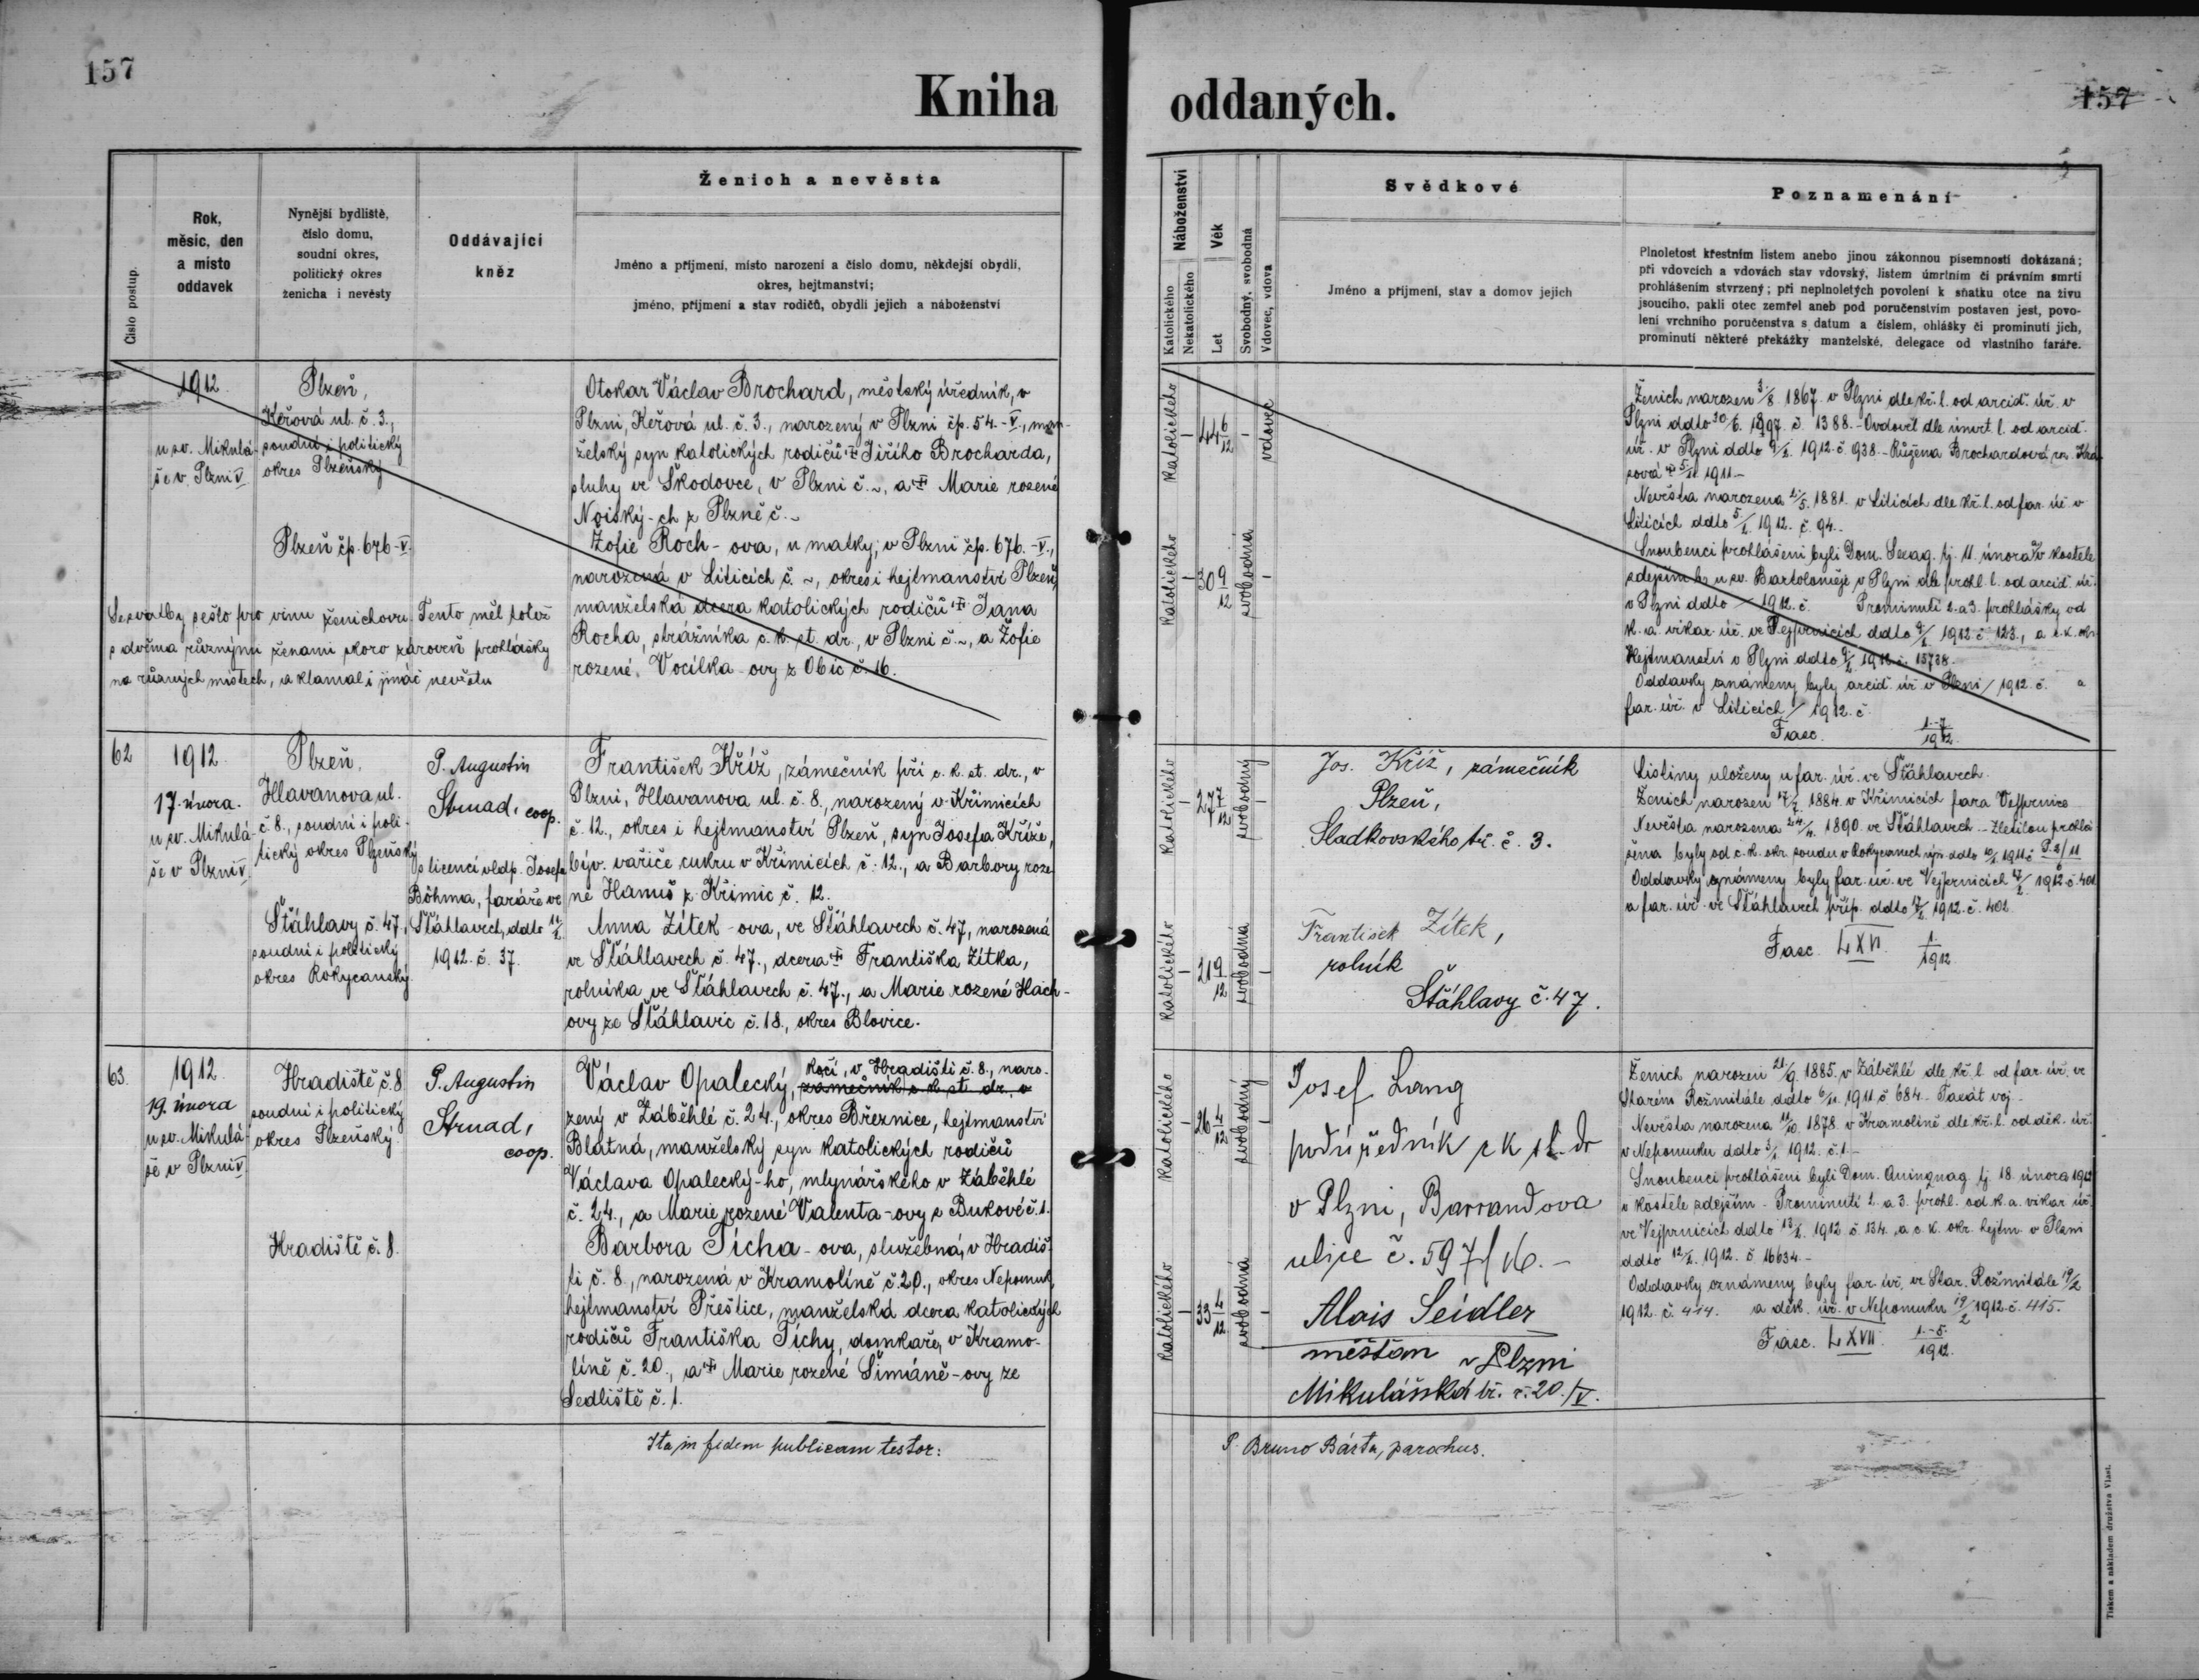 157
Kniha oddaných.
157
Číslo postup.
Rok,
měsíc, den
a místo
oddavek
Nynější bydliště,
číslo domu,
soudní okres,
politický okres
ženicha i nevěsty
Oddávající
kněz
Ženich a nevěsta
Jméno a příjmení, místo narození a číslo domu, někdejší obydlí,
okres, hejtmanství;
jméno, příjmení a stav rodičů, obydlí jejich a náboženství
Náboženství
Katolického
Nekatolického
Věk
Let
Svobodný, svobodná
Vdovec, vdova
Svědkové
Jméno a příjmení, stav a domov jejich
Poznamenání
Plnoletost křestním listem anebo jinou zákonnou písemností dokázaná;
při vdovcích a vdovách stav vdovský, listem úmrtním či právním smrti
prohlášením stvrzený; při neplnoletých povolení k sňatku otce na živu
jsoucího, pakli otec zemřel aneb pod poručenstvím postaven jest, povo-
lení vrchního poručenstva s datum a číslem, ohlášky či prominutí jich,
prominutí některé překážky manželské, delegace od vlastního faráře.
1912.
u sv. Mikulá-
še v Plzni V
Plzeň,
Keřová ul. č. 3.,
soudní i politický
okres Plzeňský
Plzeň čp. 676-V.
Se svatby sešlo pro vinu ženichovu. Tento měl totiž
s dvěma různými ženami skoro zároveň prohlášky
na různých místech, a klamal i jináč nevěstu
Otokar Václav Brochard, městský úředník, v
Plzni, Keřová ul. č. 3., narozený v Plzni čp. 54.-V., man-
želský syn katolických rodičů † Jiřího Brocharda,
sluhy ve Škodovce, v Plzni č. ~, a † Marie rozené
Noiský-ch z Plzně č. ~
Žofie Roch-ova, u matky, v Plzni čp. 676.-V.,
narozená v Liticích č. ~, okres i hejtmanství Plzeň,
manželská dcera katolických rodičů † Jana
Rocha, strážníka c. k. st. dr., v Plzni č. ~, a Žofie
rozené Vocilka-ovy z Obic č. 16.
Katolického
44 6/12
vdovec
Katolického
30 9/12
svobodna
Ženich narozen 3/8. 1867. v Plzni dle kř. l. od arcid. úř. v
Plzni ddto 30/6. 1897. č. 1388. - Ovdověl dle úmrt. l. od arcid.
úř. v Plzni ddto 1912. č. 938. - Růžena Brochardová roz.
1911. -
Nevěsta narozena 1881. v Liticích dle kř. l. od far. úř. v
Liticích ddto 5/2. 1912. č. 94.
Snoubenci prohlášeni byli Dom. Sexag. tj. 11. února v kostele
zdejším u sv. Bartoloměje v Plzni dle prohl. l. od arcid. úř.
v Plzni ddto / 1912. č. Prominutí 2. a 3. prohlášky od
k. a. vikar. úř. ve Vejprnicích ddto 1912 č. 123., a c. k. okr.
Hejtmanství v Plzni ddto 1912. č. 15738.
Oddavky oznámeny byly arcid. úř. v Plzni / 1912. č. a
far. úř. v Liticích / 1912. č.
Fasc. 1.-7/1912.
62
1912.
17. února.
u sv. Mikulá-
še v Plzni V
Plzeň,
Hlavanova ul.
č. 8., soudní i poli-
tický okres Plzeňský
Šťáhlavy č. 47.,
soudní i politický
okres Rokycanský
P. Augustin
Strnad, coop.
s licencí vldp. Josefa
Böhma, faráře ve
Šťáhlavech, ddto 11/2.
1912. č. 37.
František Kříž, zámečník při c. k. st. dr., v
Plzni, Hlavanova ul. č. 8., narozený v Křimicích
č. 12., okres i hejtmanství Plzeň, syn Josefa Kříže,
býv. vařiče cukru v Křimicích č. 12., a Barbory roze-
né Hanuš z Křimic č. 12.
Anna Zítek-ova, ve Šťáhlavech č. 47, narozená
ve Šťáhlavech č. 47., dcera † Františka Zítka,
rolníka ve Šťáhlavech č. 47., a Marie rozené Hách-
ovy ze Šťáhlavic č. 18., okres Blovice.
Katolického
27 7/12
svobodný
Katolického
21 9/12
svobodna
Jos. Kříž, zámečník
Plzeň,
Sladkovského tř. č. 3.
František Zítek,
rolník
Šťáhlavy č. 47.
Listiny uloženy u far. úř. ve Šťáhlavech.
Ženich narozen 1884. v Křimicích fara Vejprnice.
Nevěsta narozena 24/4. 1890. ve Šťáhlavech. - Zletilou prohlá-
šena byla od c. k. okr. soudu v Rokycanech ddto 1911 č. P. 2/11
Oddavky oznámeny byly far. úř. ve Vejprnicích 17/2. 1912. č. 401
a far. úř. ve Šťáhlavech příp. ddto 17/2. 1912. č. 402.
Fasc. LXVI. 1./1912
63.
1912.
19. února
u sv. Mikulá-
še v Plzni V
Hradiště č. 8
soudní i politický
okres Plzeňský.
Hradiště č. 8.
P. Augustin
Strnad,
coop.
Václav Opalecký, kočí, v Hradišti č. 8., naro-
zámečník c. k. st. dr. v
zený v Záběhlé č. 24., okres Březnice, hejtmanství
Blatná, manželský syn katolických rodičů
Václava Opalecký-ho, mlynářského v Záběhlé
č. 24., a Marie rozené Valenta-ovy z Bukové č. 1.
Barbora Tícha-ova, služebná, v Hradiš-
ti č. 8., narozená v Kramolíně č. 20., okres Nepomuk,
hejtmanství Přeštice, manželská dcera katolických
rodičů Františka Tíchy, domkaře, v Kramo-
líně č. 20., a † Marie rozené Šimáně-ovy ze
Sedliště č. 1.
Katolického
26 4/12
svobodný
Katolického
33 4/12
svobodná
Josef Lang
podúředník c k st. dr
v Plzni, Barrandova
ulice č. 597/
Alois Seidler
měšťan v Plzni
Mikulášská tř. č. 20./V.
Ženich narozen 21/9. 1885. v Záběhlé dle kř. l. od far. úř. ve
Starém Rožmitále ddto 6/11. 1911. č. 684. - voj. -
Nevěsta narozena 11/10. 1878. v Kramolíně dle kř. l. od děk. úř.
v Nepomuku ddto 3/1. 1912. č. 1. -
Snoubenci prohlášeni byli Dom. Quinquag. tj. 18. února 1912
v kostele zdejším. - Prominutí 2. a 3. prohl. od k. a. vikar. úř.
ve Vejprnicích ddto 13/2. 1912. č. 134. a c. k. okr. hejtm. v Plzni
ddto 12/2. 1912. č. 16634. -
Oddavky oznámeny byly far. úř. ve Star. Rožmitále 19/2
1912. č. 414. a děk. úř. v Nepomuku 19/2 1912. č. 415.
Fasc. LXVII. 1.-5./1912.
Ita in fidem publicam testor:
P. Bruno Bárta, parochus.
Tiskem a nákladem družstva Vlast.